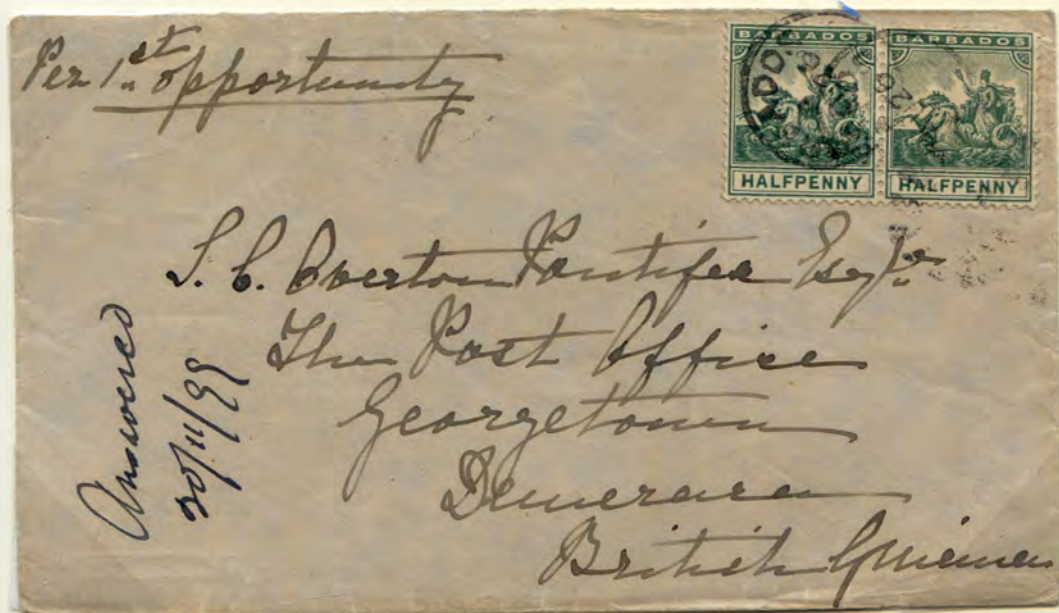 Per 1st opportunity
BARBADOS
HALFPENNY
BARBADOS
HALFPENNY
S. C. Overton Pontifex Esqre
The Post Office
Georgetown
Demerara
British Guiana
Answered
20/11/99